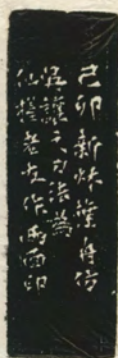 己卯新秋謹身仿
吳讓之刀法爲
仙楂老友作兩面印